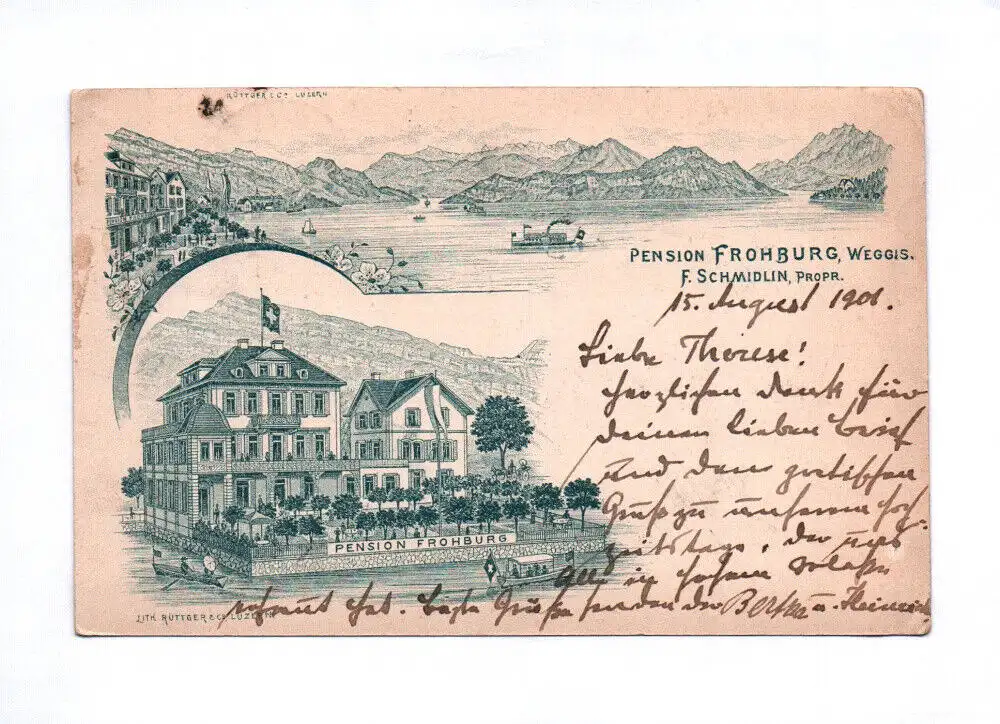 RÜTTGER & Cº LUZERN
PENSION FROHBURG, WEGGIS.
F. SCHMIDLIN, PROPR.
15. August 1901.
Liebe Therese!
herzlichen Dank für
deinen lieben Brief
und den poetischen
Gruß zu unserem Hoch-
zeitstage, der uns
alle in hohem Maße
erfreut hat. Beste Grüße senden dir Bertha u. Heinrich
PENSION FROHBURG
LITH. RÜTTGER & Cº LUZERN